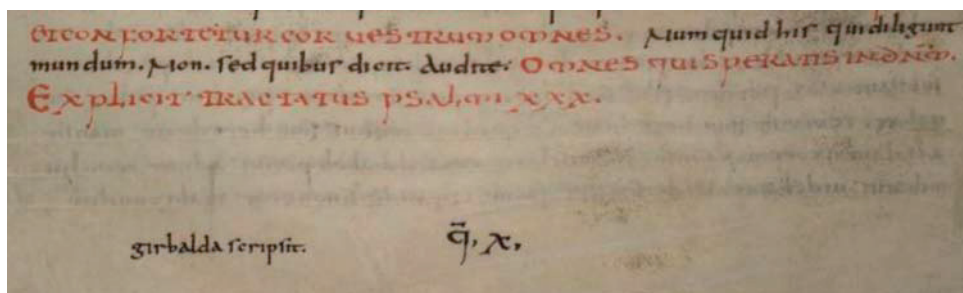 ETCONFORTETUR COR UESTRUM OMNES. Numquid his qui diligunt
mundum. Non. sed quibus dicit. Audite. OMNES QUI SPERATIS IN DN̄M.
EXPLICIT TRACTATUS PSALMI. XXX.
girbalda scripsit. q̄, X,